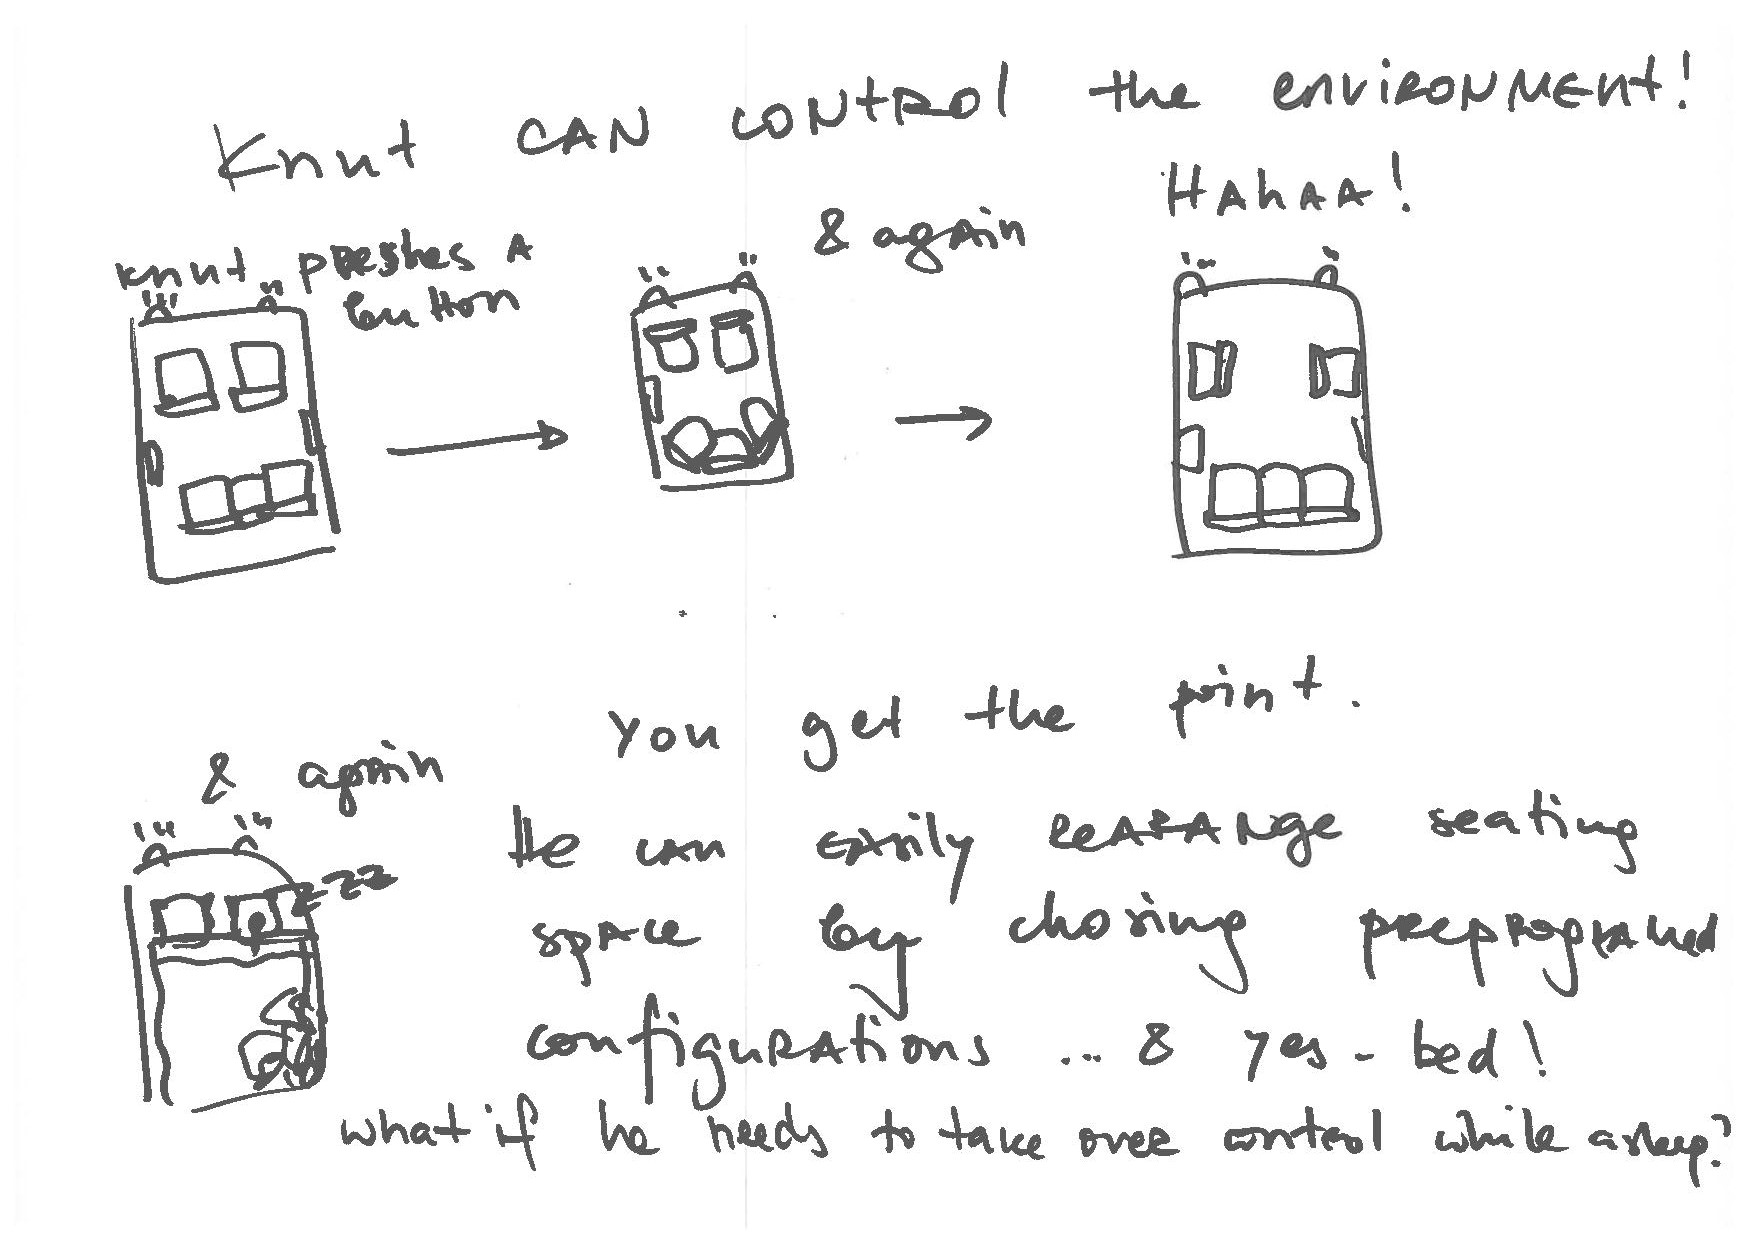 Knut CAN CONTROL the ENVIRONMENT!
HAHAA!
Knut presses A
button
& again
& again
You get the point.
zzz
He can EASily ReARANge seating
space by chosing preprogramed
configurations ... & yes - bed!
what if he needs to take over control while asleep?